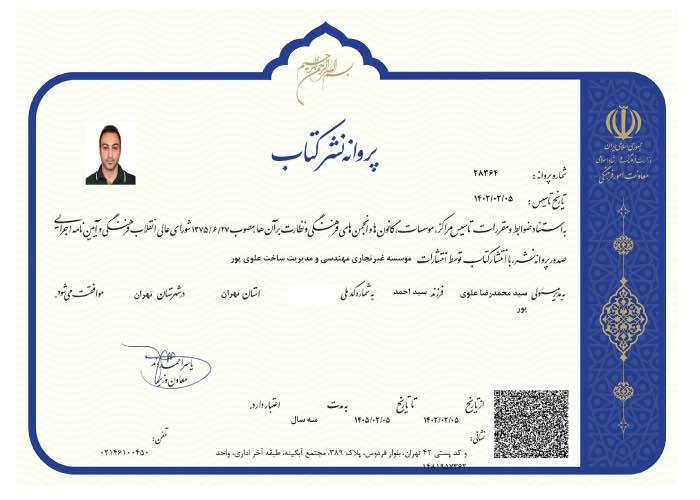 بسم الله الرحمن الرحیم
جمهوری اسلامی ایران
وزارت فرهنگ و ارشاد اسلامی
معاونت امور فرهنگی
پروانه نشر کتاب
شماره پروانه: ۲۸۳۶۴
تاریخ تاسیس: ۱۴۰۲/۰۲/۰۵
به استناد ضوابط و مقررات تاسیس مراکز، موسسات، کانون ها و انجمن های فرهنگی و نظارت بر آن ها مصوب ۱۳۷۵/۶/۲۷ شورای عالی انقلاب فرهنگی و آیین نامه اجرایی
صدور پروانه نشر، با انتشار کتاب توسط انتشارات موسسه غیرتجاری مهندسی و مدیریت ساخت علوی پور
به مدیر مسئولی سید محمدرضا علوی پور فرزند سید احمد به شماره کد ملی استان تهران در شهرستان تهران موافقت می شود.
یاسر احمدوند
معاون وزیر
از تاریخ ۱۴۰۲/۰۲/۰۵ تا تاریخ ۱۴۰۵/۰۲/۰۵ به مدت سه سال اعتبار دارد.
نشانی:
تهران، بلوار فردوس، پلاک ۳۸۹، مجتمع آبگینه، طبقه آخر اداری، واحد ۴۲ و کد پستی
تلفن:
۰۲۱۴۶۱۰۰۴۵۰